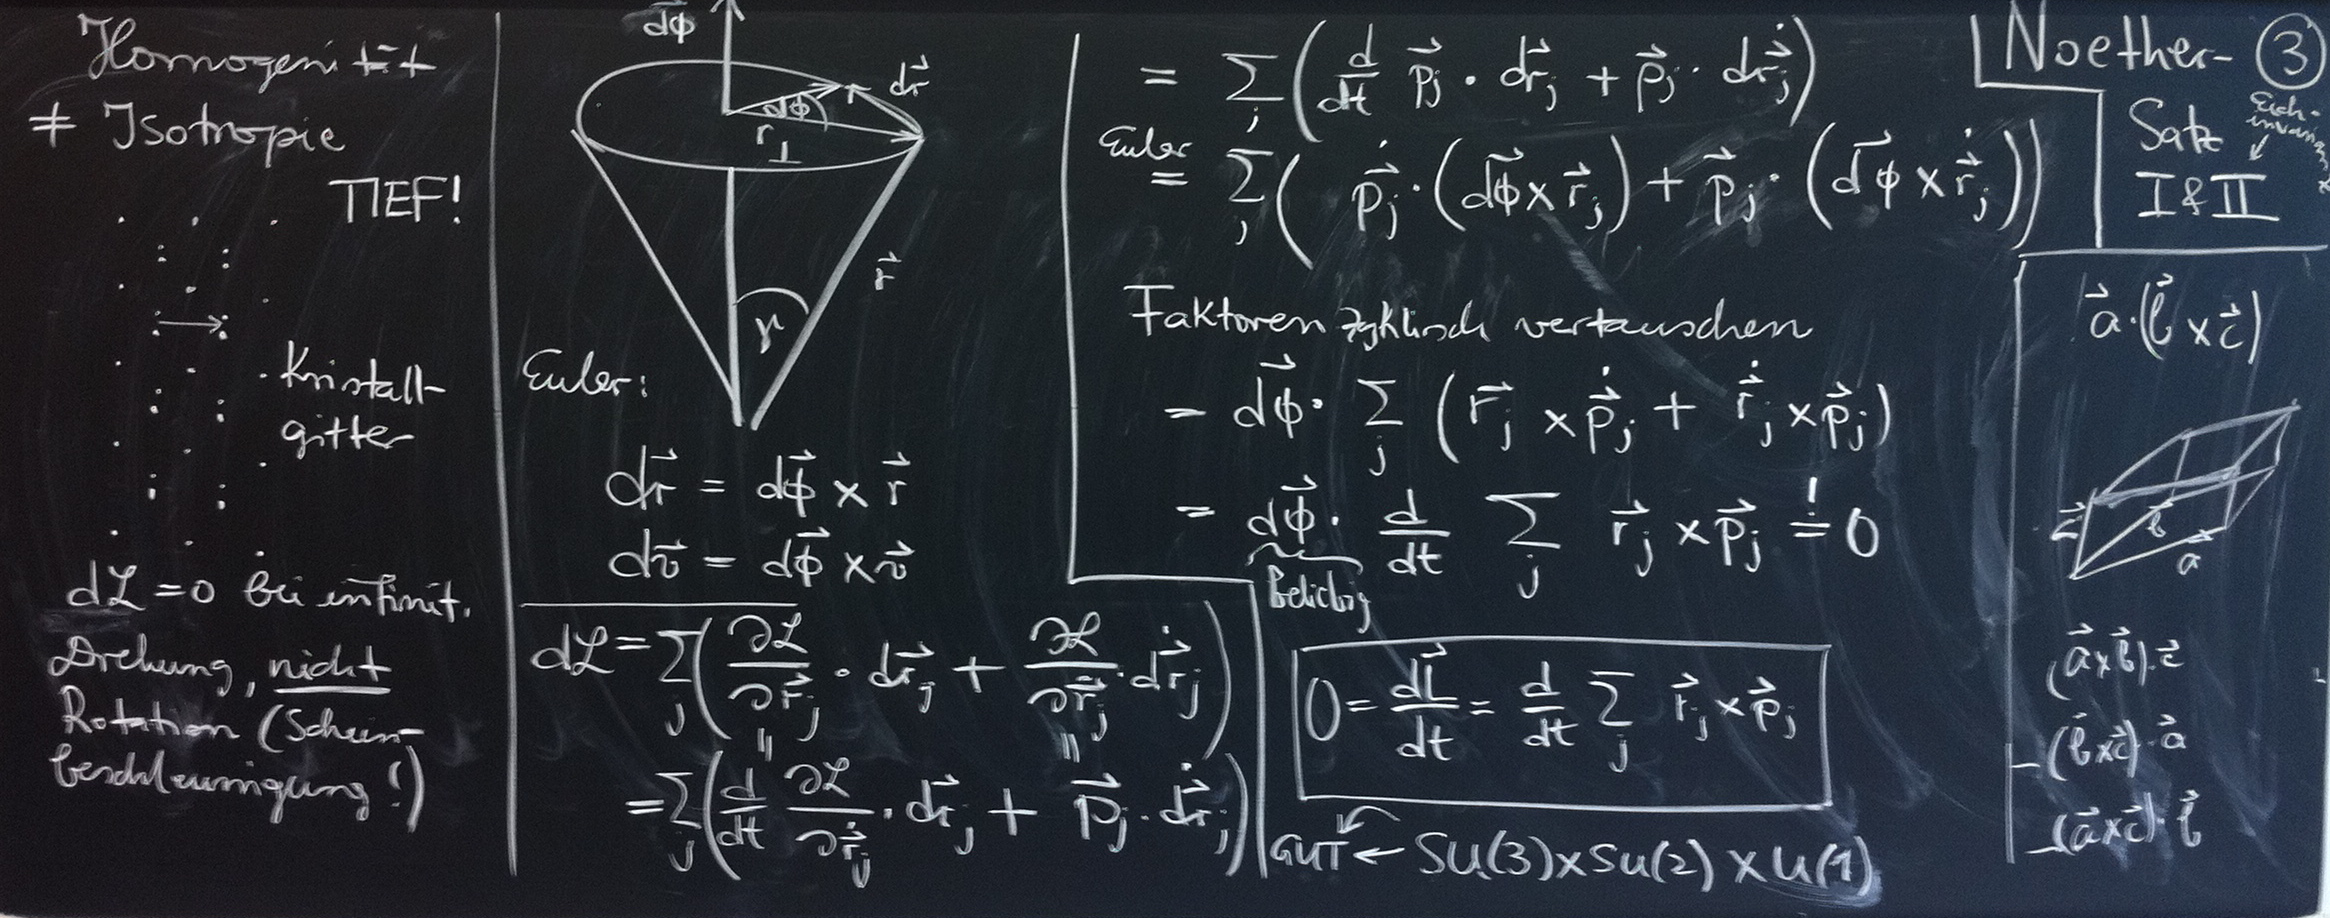 Homogenität
≠ Isotropie
TIEF!
Kristall-
gitter
dℒ = 0 bei infinit.
Drehung, nicht
Rotation (Schein-
beschleunigung!)
dϕ⃗
dr⃗
dϕ
r⊥
r⃗
γ
Euler:
dr⃗ = dϕ⃗ × r⃗
dv⃗ = dϕ⃗ × v⃗
dℒ = ∑_j (∂ℒ/∂r⃗_j · dr⃗_j + ∂ℒ/∂ṙ⃗_j · dṙ⃗_j)
= ∑_j (d/dt ∂ℒ/∂ṙ⃗_j · dr⃗_j + p⃗_j · dṙ⃗_j)
= ∑_j (d/dt p⃗_j · dr⃗_j + p⃗_j · dṙ⃗_j)
Euler
= ∑_j (ṗ⃗_j · (dϕ⃗ × r⃗_j) + p⃗_j · (dϕ⃗ × ṙ⃗_j))
Faktoren zyklisch vertauschen
= dϕ⃗ · ∑_j (r⃗_j × ṗ⃗_j + ṙ⃗_j × p⃗_j)
= dϕ⃗ · d/dt ∑_j r⃗_j × p⃗_j =! 0
beliebig
0 = dL⃗/dt = d/dt ∑_j r⃗_j × p⃗_j
GUT ← SU(3) × SU(2) × U(1)
Noether- ③
Satz
I & II
Eich-
invarianz
a⃗ · (b⃗ × c⃗)
c⃗
b⃗
a⃗
(a⃗ × b⃗) · c⃗
(b⃗ × c⃗) · a⃗
-(a⃗ × c⃗) · b⃗